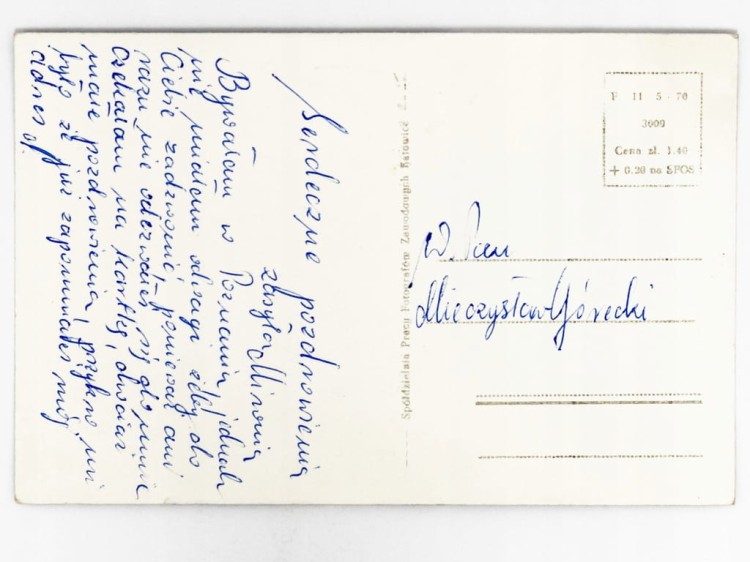 Serdeczne pozdrowienia
zasyła
Bywałam w Poznaniu jednak
nie miałam odwagi żeby do
Ciebie zadzwonić, ponieważ ani
razu nie odezwałeś się do mnie
czekałam na kartkę, chociaż
małe pozdrowienia, przykro mi
było że już zapomniałeś mój
adres
Spółdzielnia Pracy Fotografów Zawodowych Katowice
P 11 5 - 70
3000
Cena zł. 1.40
+ 0.20 na SPOS
W. Pan
Mieczysław Górecki